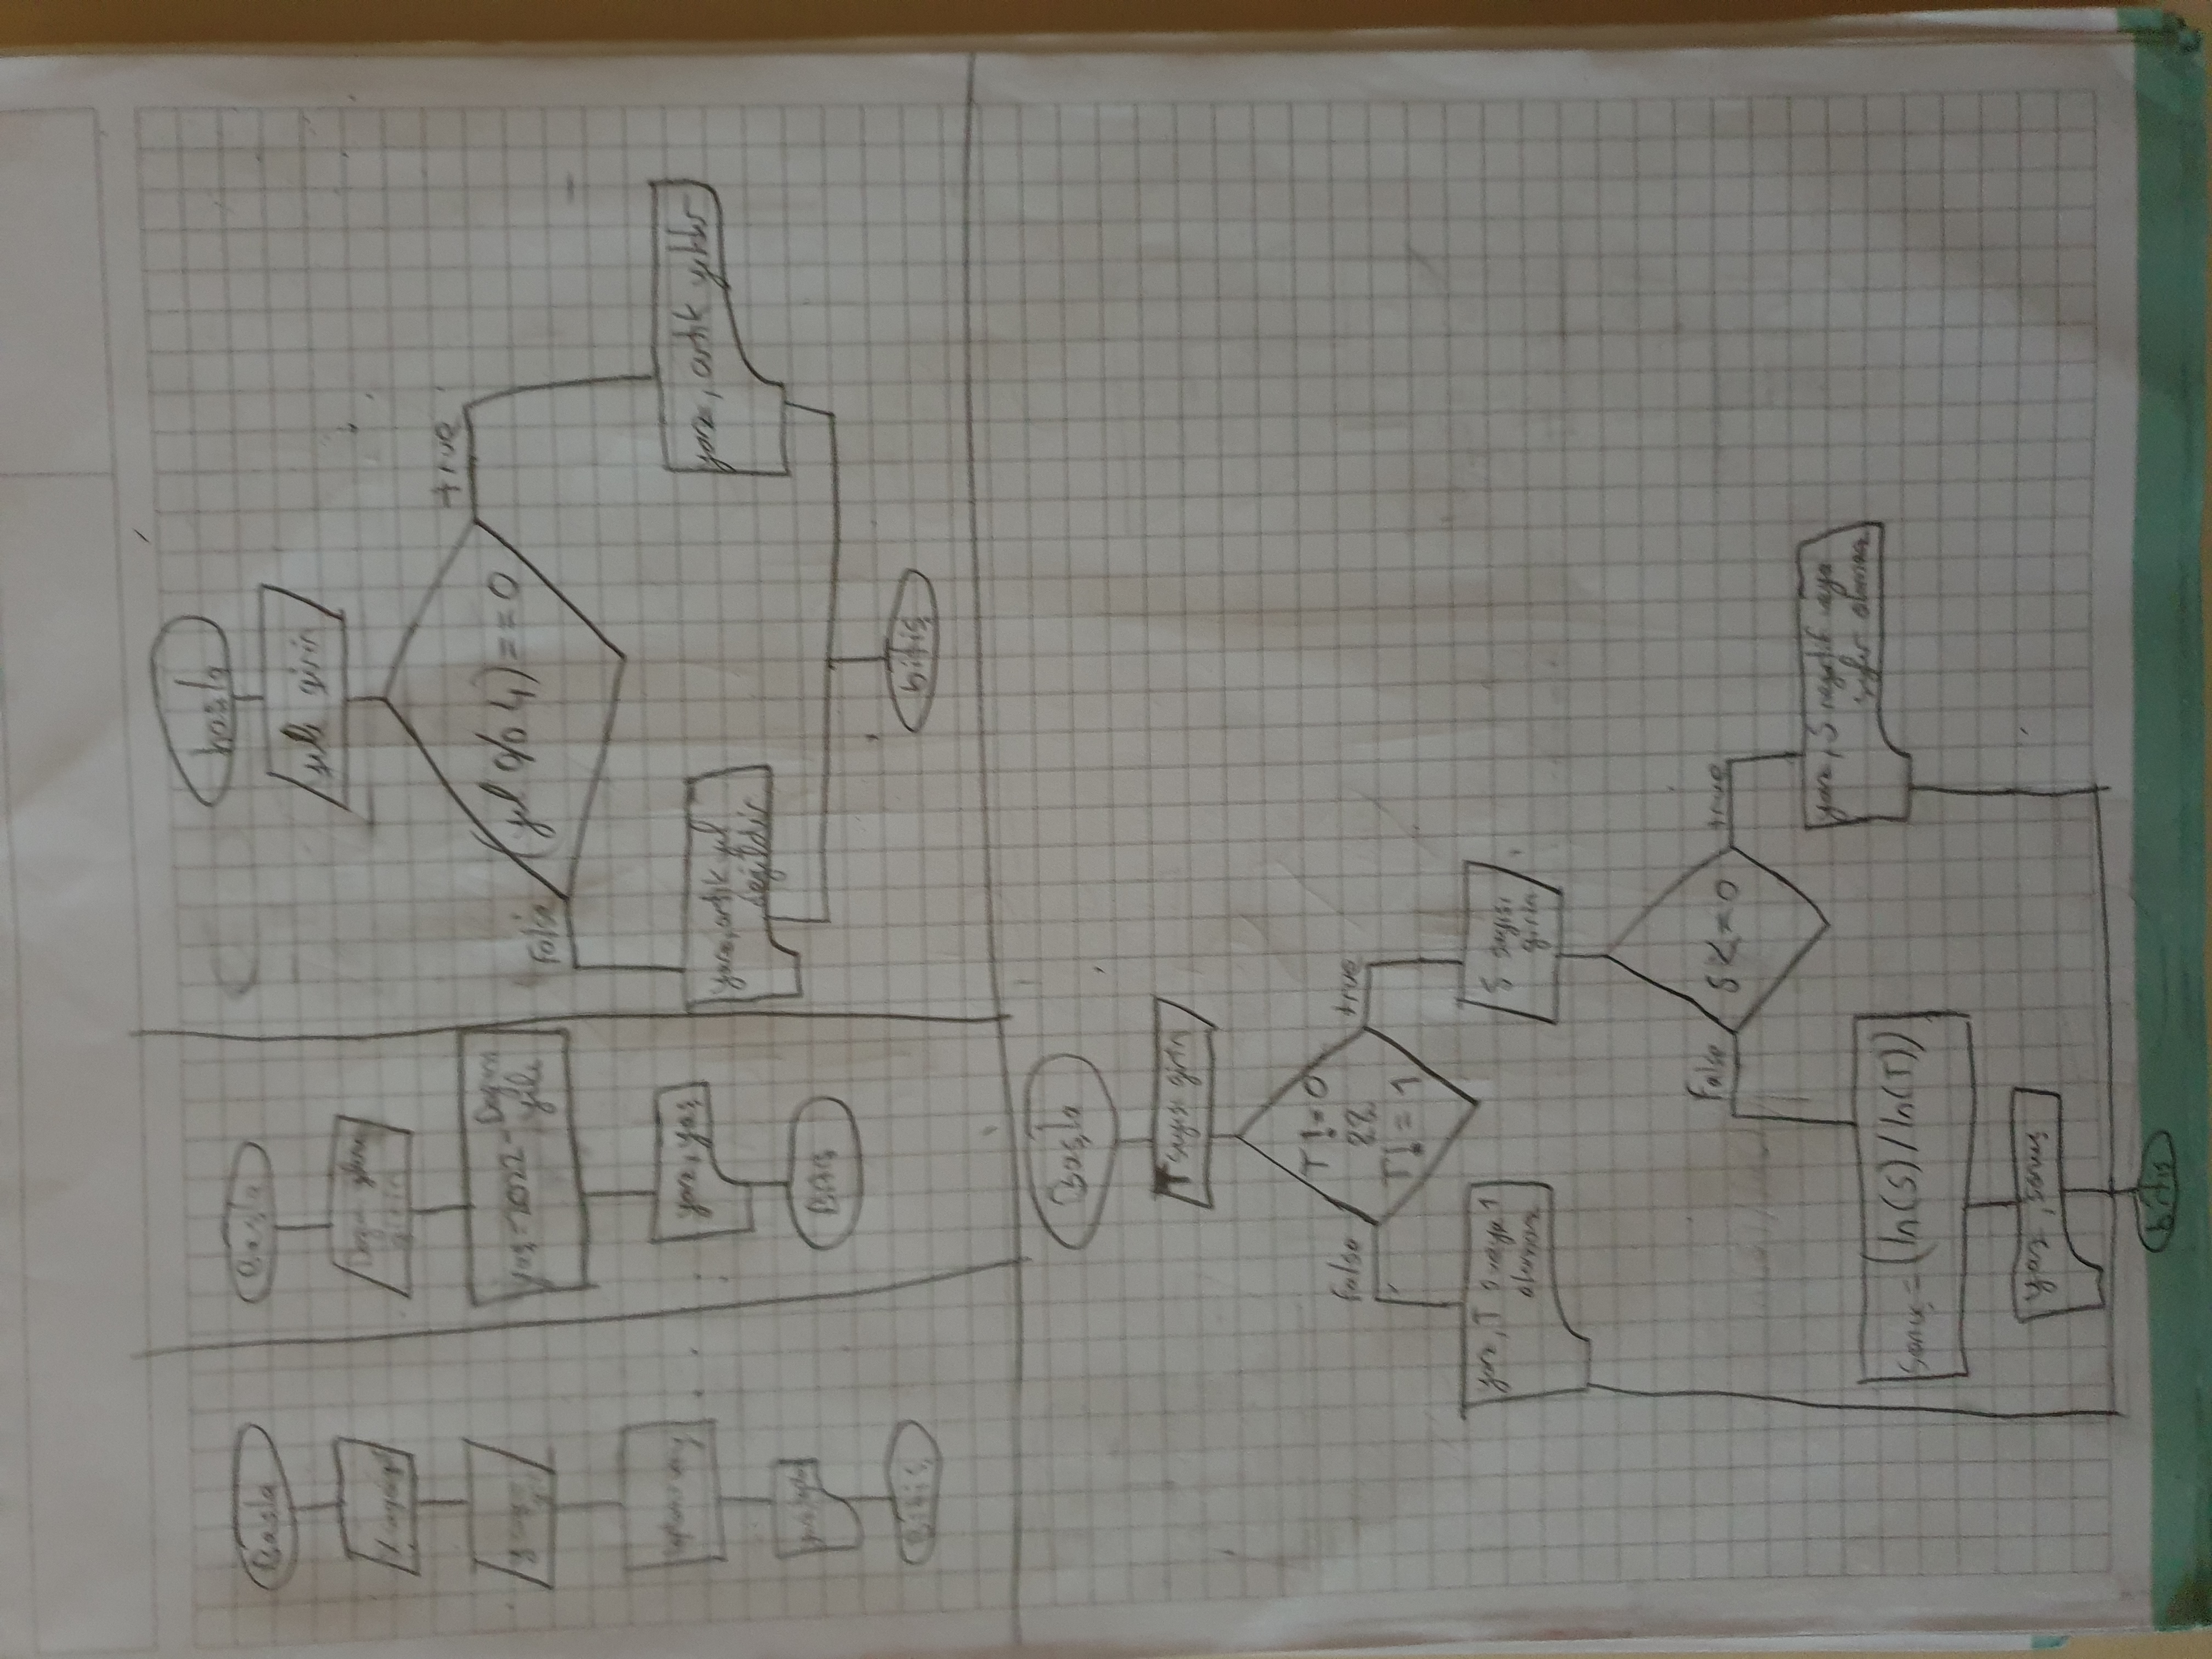 Başla
Bitiş
Başla
Doğum yılını
girin
yaş=2022-Doğum
yılı
yaz, yaş
başla
yılı girin
(yıl % 4)==0
true
False
yaz, artık yıl
değildir
yaz, artık yıldır
bitiş
Başla
T sayısı girin
T!=0
&&
T!=1
False
true
yaz, T 0 veya 1
olamaz
S sayısı
girin
S<=0
False
true
yaz, S negatif veya
sıfır olamaz
Sonuç=(ln(S)/ln(T))
yaz, sonuç
bitiş